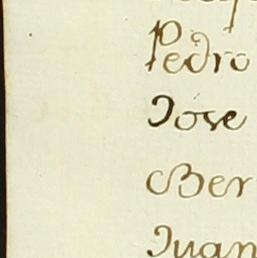 Pedro
Jose
Ber
Juan